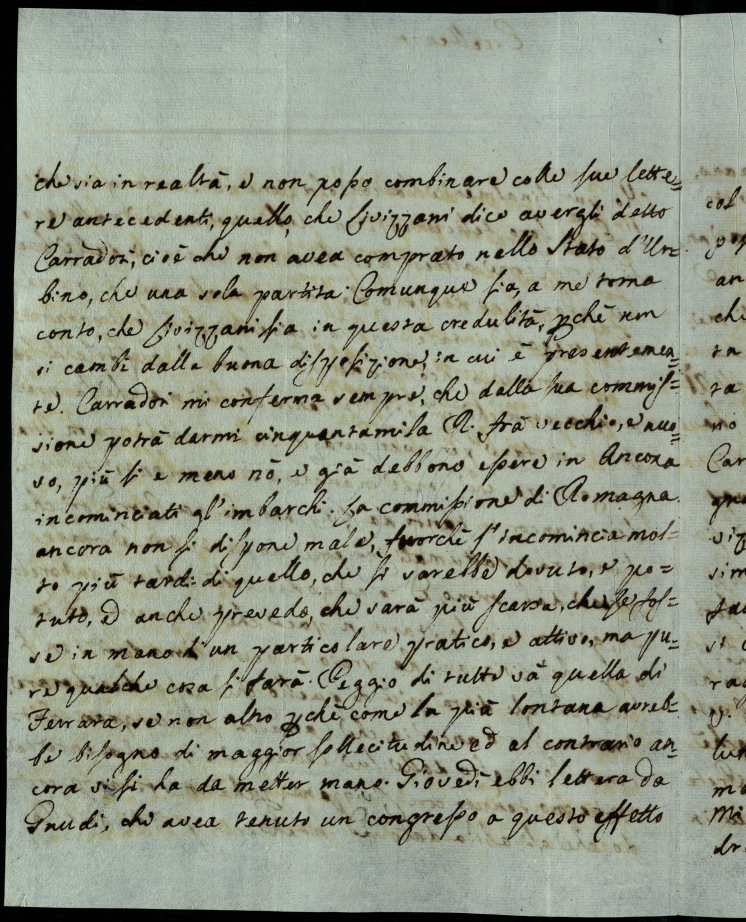 che sia in realtà, e non posso combinare colle sue lette=
re antecedenti, quello, che Livizzani dice avergli detto
Carradori, cioè che non avea comprato nello Stato d'Ur=
bino, che una sola partita. Comunque sia, a me torna
conto, che Livizzani sia in questa credulità, pchè non
si cambi dalla buona disposizione, in cui è presentemen=
te. Carradori mi conferma sempre, che dalla sua commis=
sione potrà darmi cinquantamila R. frà vecchio, e nuo=
vo, più si e meno nò, e già debbono essere in Ancona
incominciati gl'imbarchi. La commissione di Romagna
ancora non si dispone male, fuorchè s'incomincia mol=
to più tardi di quello, che si sarebbe dovuto, e po=
tuto, ed anche prevedo, che sarà più scarsa, che se fos=
se in mano d'un particolare pratico, e attivo, ma pu=
re qualche cosa si farà. Peggio di tutte và quella di
Ferrara, se non altro pchè come la più lontana avreb=
be bisogno di maggior sollecitudine ed al contrario an=
cora vi si ha da metter mano. Giovedì ebbi lettera da
Gnudi, che avea tenuto un congresso a questo effetto
col
an
che
tn
ta
no
Car
viz
sim
si
ra
lun
mo
Mi
dr